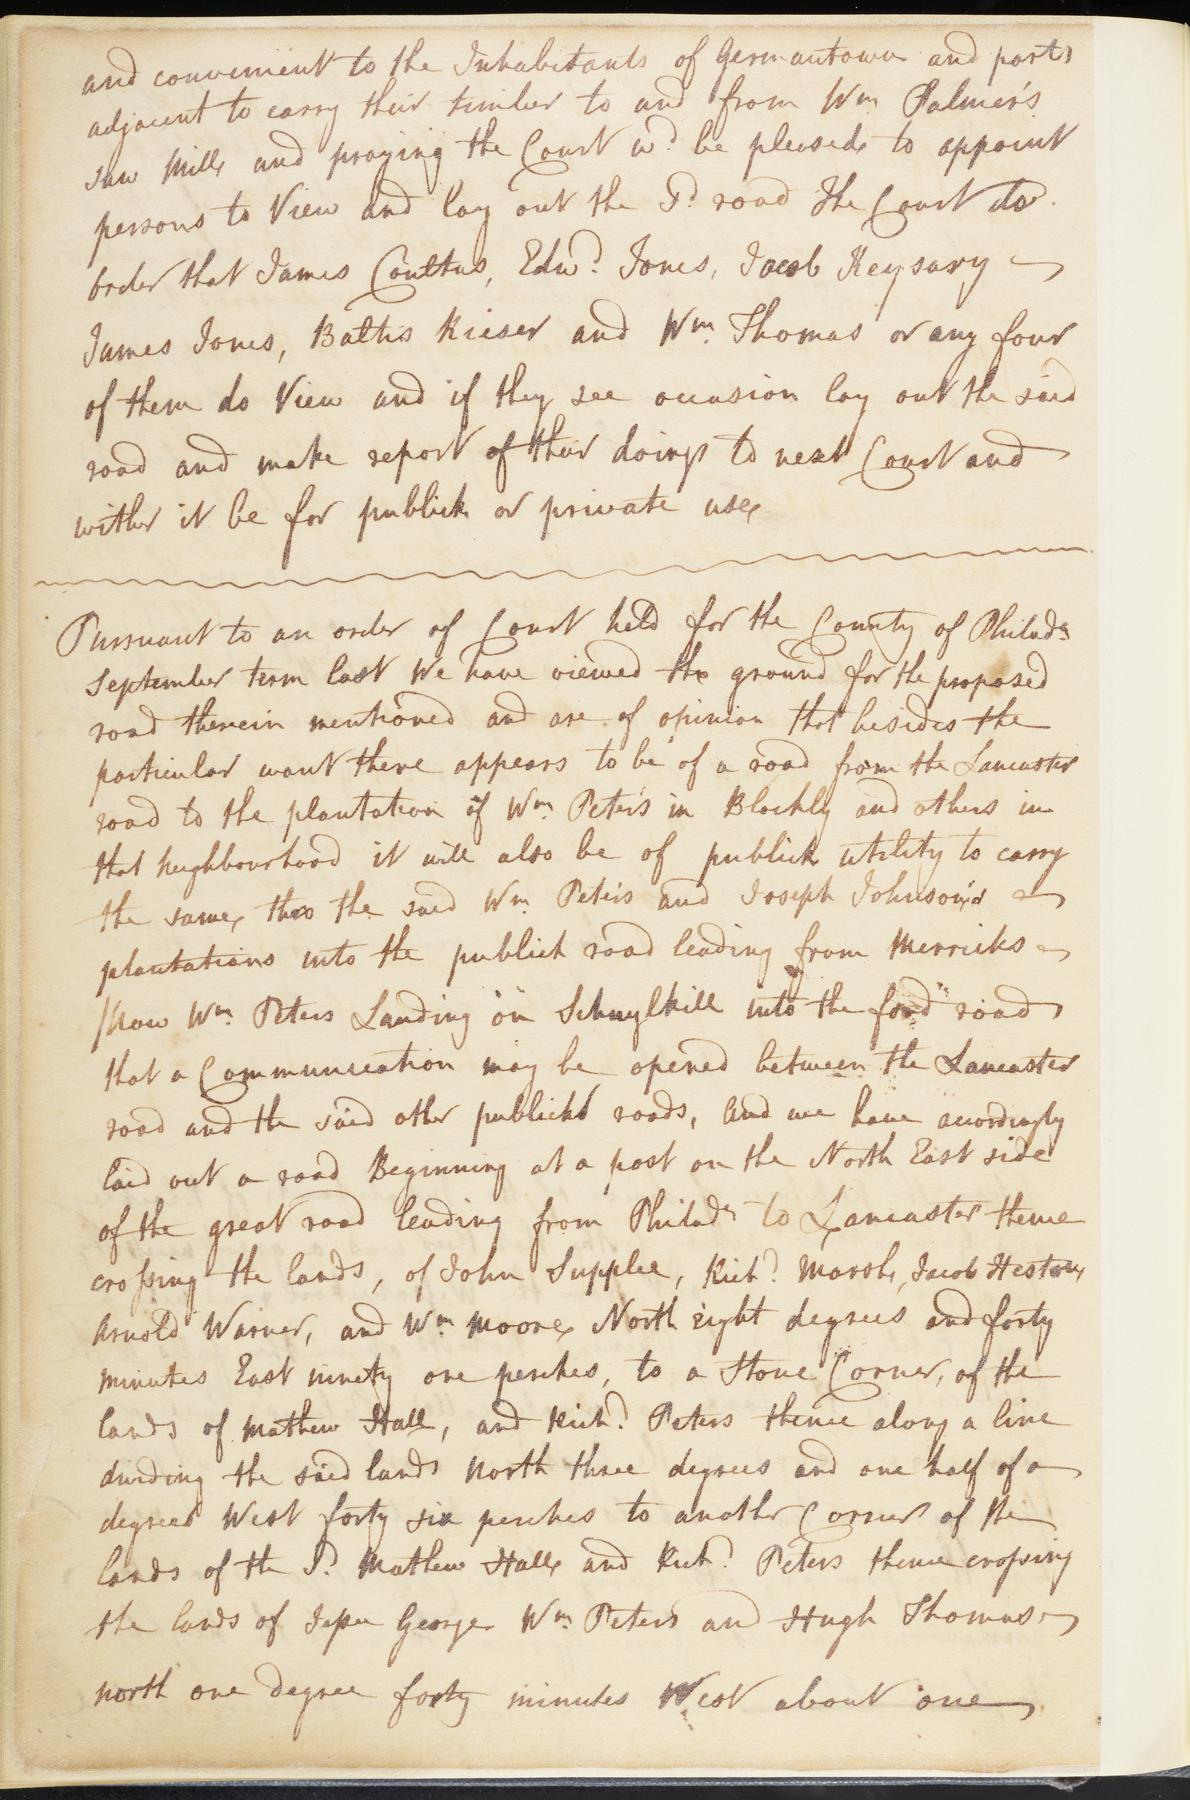 and convenient to the Inhabitants of Germantown and parts
adjacent to carry their timber to and from Wm Palmer's
saw Mill and praying the Court wd. be pleased to appoint
persons to View and lay out the Sd. road The Court do
order that James Coultus, Edwd. Jones, Jacob Keysary
James Jones, Baltis Rieser and Wm. Thomas or any four
of them do View and if they see occasion lay out the said
road and make report of their doings to next Court and
wither it be for publick or private use
Pursuant to an order of Court held for the County of Philada
September term last We have viewed the ground for the proposed
road therein mentioned and are of opinion that besides the
particular want there appears to be of a road from the Lancaster
road to the plantation of Wm. Peters in Blockly and others in
that neighbourhood it will also be of publick utility to carry
the same thro the said Wm. Peters and Joseph Johnson's
plantations into the publick road leading from Merricks
/Now Wm. Peters Landing on Schuylkill into the ford road
that a Communication may be opened between the Lancaster
road and the said other publick roads, and we have accordingly
laid out a road Beginning at a post on the North East side
of the great road leading from Philada to Lancaster thence
crossing the lands, of John Supplee, Richd. Marsh, Jacob Heston
Arnold Warner, and Wm. Moore North eight degrees and forty
minutes East ninety one perches, to a Stone Corner, of the
lands of Mathew Hall, and Richd. Peters thence along a line
dividing the said lands North three degrees and one half of a
degree West forty six perches to another Corner of the
lands of the Sd. Mathew Hall and Richd. Peters thence crossing
the lands of George Wm. Peters and Hugh Thomas
north one degree forty minutes West about one